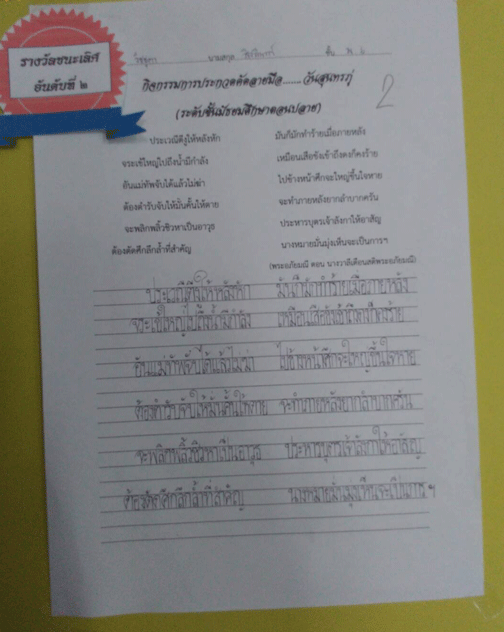 รางวัลชนะเลิศ
อันดับที่ ๒
นามสกุล ชั้น
กิจกรรมการประกวดคัดลายมือ......วันสุนทรภู่
2
(ระดับชั้นมัธยมศึกษาตอนปลาย)
ประเวณีตีงูให้หลังหัก มันก็มักทำร้ายเมื่อภายหลัง
จระเข้ใหญ่ไปถึงน้ำมีกำลัง เหมือนเสือขังเข้าถึงดงก็คงร้าย
อันแม่ทัพจับได้แล้วไม่ฆ่า ไปข้างหน้าศึกจะใหญ่ขึ้นใจหาย
ต้องตำรับจับให้มั่นคั้นให้ตาย จะทำภายหลังยากลำบากครัน
จะพลิกพลิ้วชิวหาเป็นอาวุธ ประหารบุตรเจ้าลังกาให้อาสัญ
ต้องตัดศึกลึกล้ำที่สำคัญ นางหมายมั่นมุ่งเห็นจะเป็นการฯ
(พระอภัยมณี ตอน นางวาลีเตือนสติพระอภัยมณี)
ประเวณีตีงูให้หลังหัก มันก็มักทำร้ายเมื่อภายหลัง
จระเข้ใหญ่ไปถึงน้ำมีกำลัง เหมือนเสือขังเข้าถึงดงก็คงร้าย
อันแม่ทัพจับได้แล้วไม่ฆ่า ไปข้างหน้าศึกจะใหญ่ขึ้นใจหาย
ต้องตำรับจับให้มั่นคั้นให้ตาย จะทำภายหลังยากลำบากครัน
จะพลิกพลิ้วชิวหาเป็นอาวุธ ประหารบุตรเจ้าลังกาให้อาสัญ
ต้องตัดศึกลึกล้ำที่สำคัญ นางหมายมั่นมุ่งเห็นจะเป็นการ ฯ